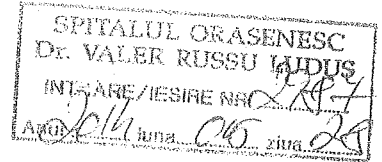 SPITALUL ORASENESC
Dr. VALER RUSSU LUDUS
INTRARE/IESIRE NR.
Anul 2014 luna 05 ziua 28